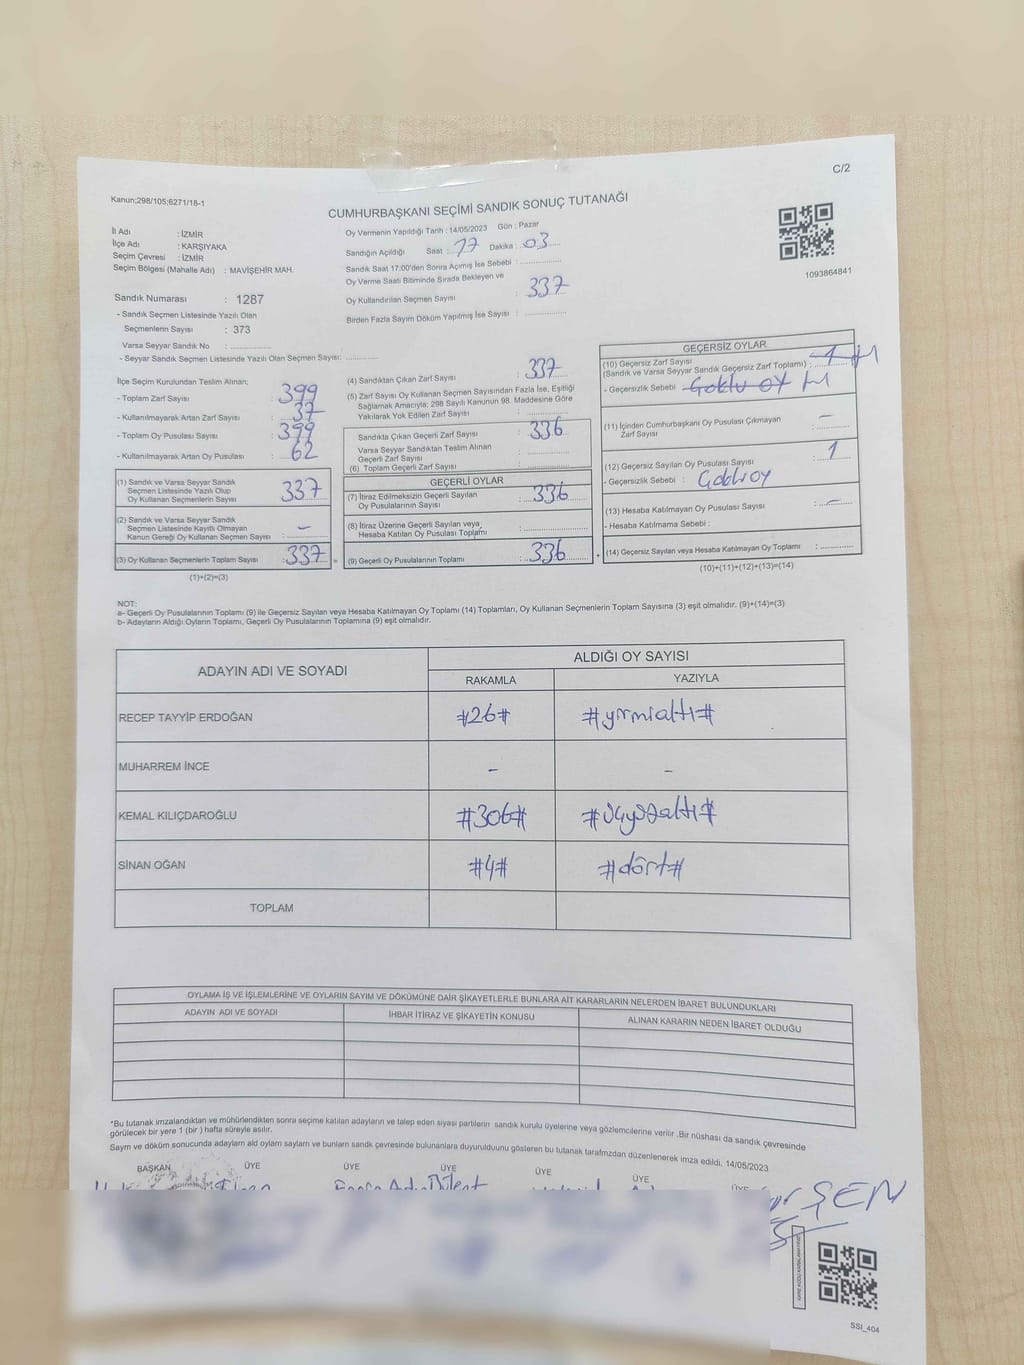 C/2
Kanun:298/105;6271/18-1
CUMHURBAŞKANI SEÇİMİ SANDIK SONUÇ TUTANAĞI
İl Adı : İZMİR
İlçe Adı : KARŞIYAKA
Seçim Çevresi : İZMİR
Seçim Bölgesi (Mahalle Adı) : MAVİŞEHİR MAH.
Oy Vermenin Yapıldığı Tarih : 14/05/2023 Gün : Pazar
Sandığın Açıldığı Saat : 17 Dakika : 03
Sandık Saat 17:00'den Sonra Açmış İse Sebebi :
Oy Verme Saati Bitiminde Sırada Bekleyen ve
Oy Kullandırılan Seçmen Sayısı : 337
Birden Fazla Sayım Döküm Yapılmış İse Sayısı :
1093864841
Sandık Numarası : 1287
- Sandık Seçmen Listesinde Yazılı Olan
Seçmenlerin Sayısı : 373
Varsa Seyyar Sandık No :
- Seyyar Sandık Seçmen Listesinde Yazılı Olan Seçmen Sayısı:
İlçe Seçim Kurulundan Teslim Alınan;
- Toplam Zarf Sayısı : 399
- Kullanılmayarak Artan Zarf Sayısı : 37
- Toplam Oy Pusulası Sayısı : 399
- Kullanılmayarak Artan Oy Pusulası : 62
(1) Sandık ve Varsa Seyyar Sandık
Seçmen Listesinde Yazılı Olup
Oy Kullanan Seçmenlerin Sayısı : 337
(2) Sandık ve Varsa Seyyar Sandık
Seçmen Listesinde Kayıtlı Olmayan
Kanun Gereği Oy Kullanan Seçmen Sayısı : -
(3) Oy Kullanan Seçmenlerin Toplam Sayısı : 337 =
(1)+(2)=(3)
(4) Sandıktan Çıkan Zarf Sayısı : 337
(5) Zarf Sayısı Oy Kullanan Seçmen Sayısından Fazla İse, Eşitliği
Sağlamak Amacıyla; 298 Sayılı Kanunun 98. Maddesine Göre
Yakılarak Yok Edilen Zarf Sayısı :
Sandıkta Çıkan Geçerli Zarf Sayısı : 336
Varsa Seyyar Sandıktan Teslim Alınan
Geçerli Zarf Sayısı :
(6) Toplam Geçerli Zarf Sayısı :
GEÇERLİ OYLAR
(7) İtiraz Edilmeksizin Geçerli Sayılan
Oy Pusulalarının Sayısı : 336
(8) İtiraz Üzerine Geçerli Sayılan veya
Hesaba Katılan Oy Pusulası Toplamı :
(9) Geçerli Oy Pusulalarının Toplamı : 336 +
GEÇERSİZ OYLAR
(10) Geçersiz Zarf Sayısı
(Sandık ve Varsa Seyyar Sandık Geçersiz Zarf Toplamı) : 1
- Geçersizlik Sebebi : Goklu oy
(11) İçinden Cumhurbaşkanı Oy Pusulası Çıkmayan
Zarf Sayısı : -
(12) Geçersiz Sayılan Oy Pusulası Sayısı : 1
- Geçersizlik Sebebi :
(13) Hesaba Katılmayan Oy Pusulası Sayısı : -
- Hesaba Katılmama Sebebi :
(14) Geçersiz Sayılan veya Hesaba Katılmayan Oy Toplamı :
(10)+(11)+(12)+(13)=(14)
NOT:
a- Geçerli Oy Pusulalarının Toplamı (9) ile Geçersiz Sayılan veya Hesaba Katılmayan Oy Toplamı (14) Toplamları, Oy Kullanan Seçmenlerin Toplam Sayısına (3) eşit olmalıdır. (9)+(14)=(3)
b- Adayların Aldığı Oyların Toplamı, Geçerli Oy Pusulalarının Toplamına (9) eşit olmalıdır.
ADAYIN ADI VE SOYADI ALDIĞI OY SAYISI
RAKAMLA YAZIYLA
RECEP TAYYİP ERDOĞAN #26# #yirmialtı#
MUHARREM İNCE - -
KEMAL KILIÇDAROĞLU #306# #üçyüzaltı#
SİNAN OĞAN #4# #dört#
TOPLAM
OYLAMA İŞ VE İŞLEMLERİNE VE OYLARIN SAYIM VE DÖKÜMÜNE DAİR ŞİKAYETLERLE BUNLARA AİT KARARLARIN NELERDEN İBARET BULUNDUKLARI
ADAYIN ADI VE SOYADI İHBAR İTİRAZ VE ŞİKAYETİN KONUSU ALINAN KARARIN NEDEN İBARET OLDUĞU
*Bu tutanak imzalandıktan ve mühürlendikten sonra seçime katılan adayların ve talep eden siyasi partilerin sandık kurulu üyelerine veya gözlemcilerine verilir .Bir nüshası da sandık çevresinde
görülecek bir yere 1 (bir ) hafta süreyle asılır.
Sayım ve döküm sonucunda adayların aldı oyların sayların ve bunların sandık çevresinde bulunanlara duyurulduunu gösteren bu tutanak tarafmzdan düzenlenerek imza edildi. 14/05/2023
BAŞKAN ÜYE ÜYE ÜYE ÜYE ÜYE ÜYE
ŞEN
SSI_404